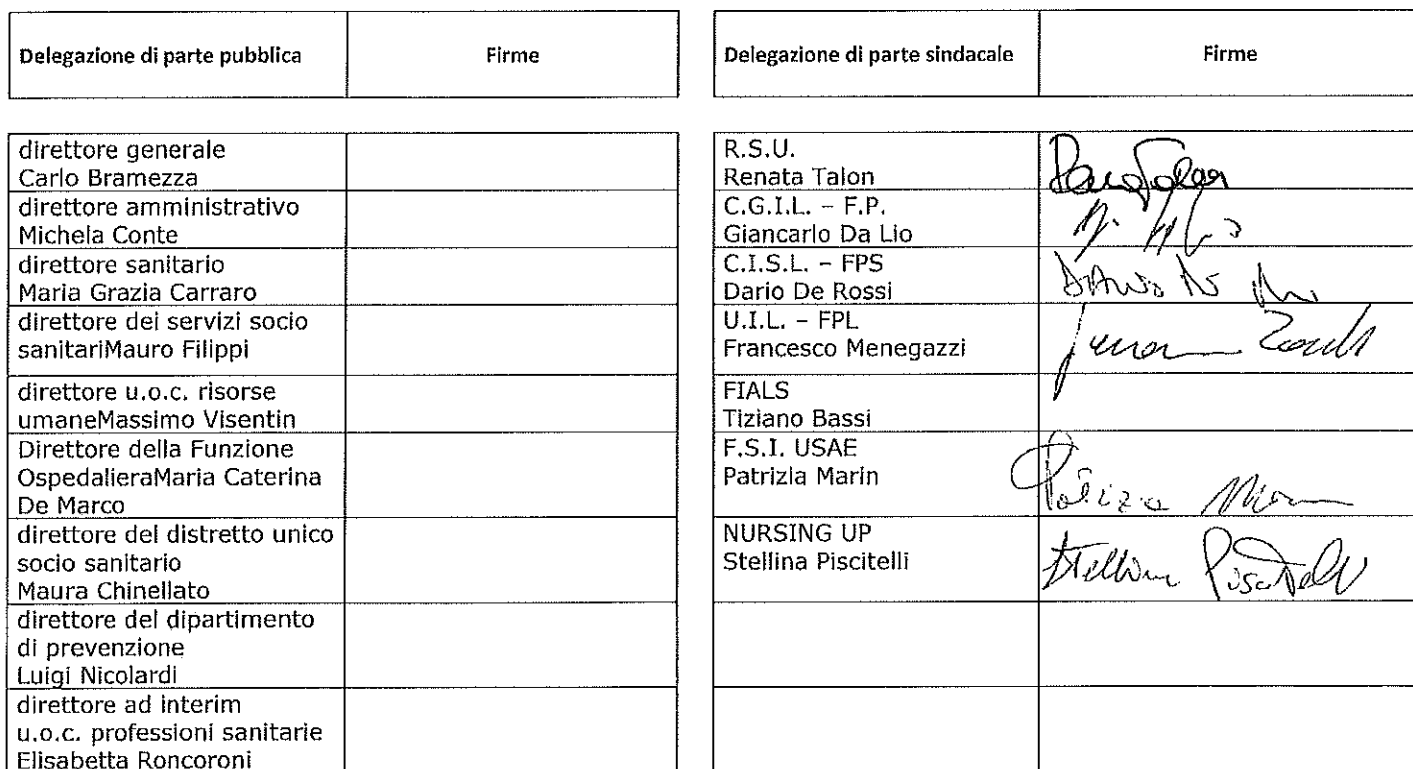 Delegazione di parte pubblica
Firme
Delegazione di parte sindacale
Firme
direttore generale
Carlo Bramezza
direttore amministrativo
Michela Conte
direttore sanitario
Maria Grazia Carraro
direttore dei servizi socio
sanitariMauro Filippi
direttore u.o.c. risorse
umaneMassimo Visentin
Direttore della Funzione
OspedalieraMaria Caterina
De Marco
direttore del distretto unico
socio sanitario
Maura Chinellato
direttore del dipartimento
di prevenzione
Luigi Nicolardi
direttore ad interim
u.o.c. professioni sanitarie
Elisabetta Roncoroni
R.S.U.
Renata Talon
C.G.I.L. – F.P.
Giancarlo Da Lio
C.I.S.L. – FPS
Dario De Rossi
U.I.L. – FPL
Francesco Menegazzi
FIALS
Tiziano Bassi
F.S.I. USAE
Patrizia Marin
NURSING UP
Stellina Piscitelli